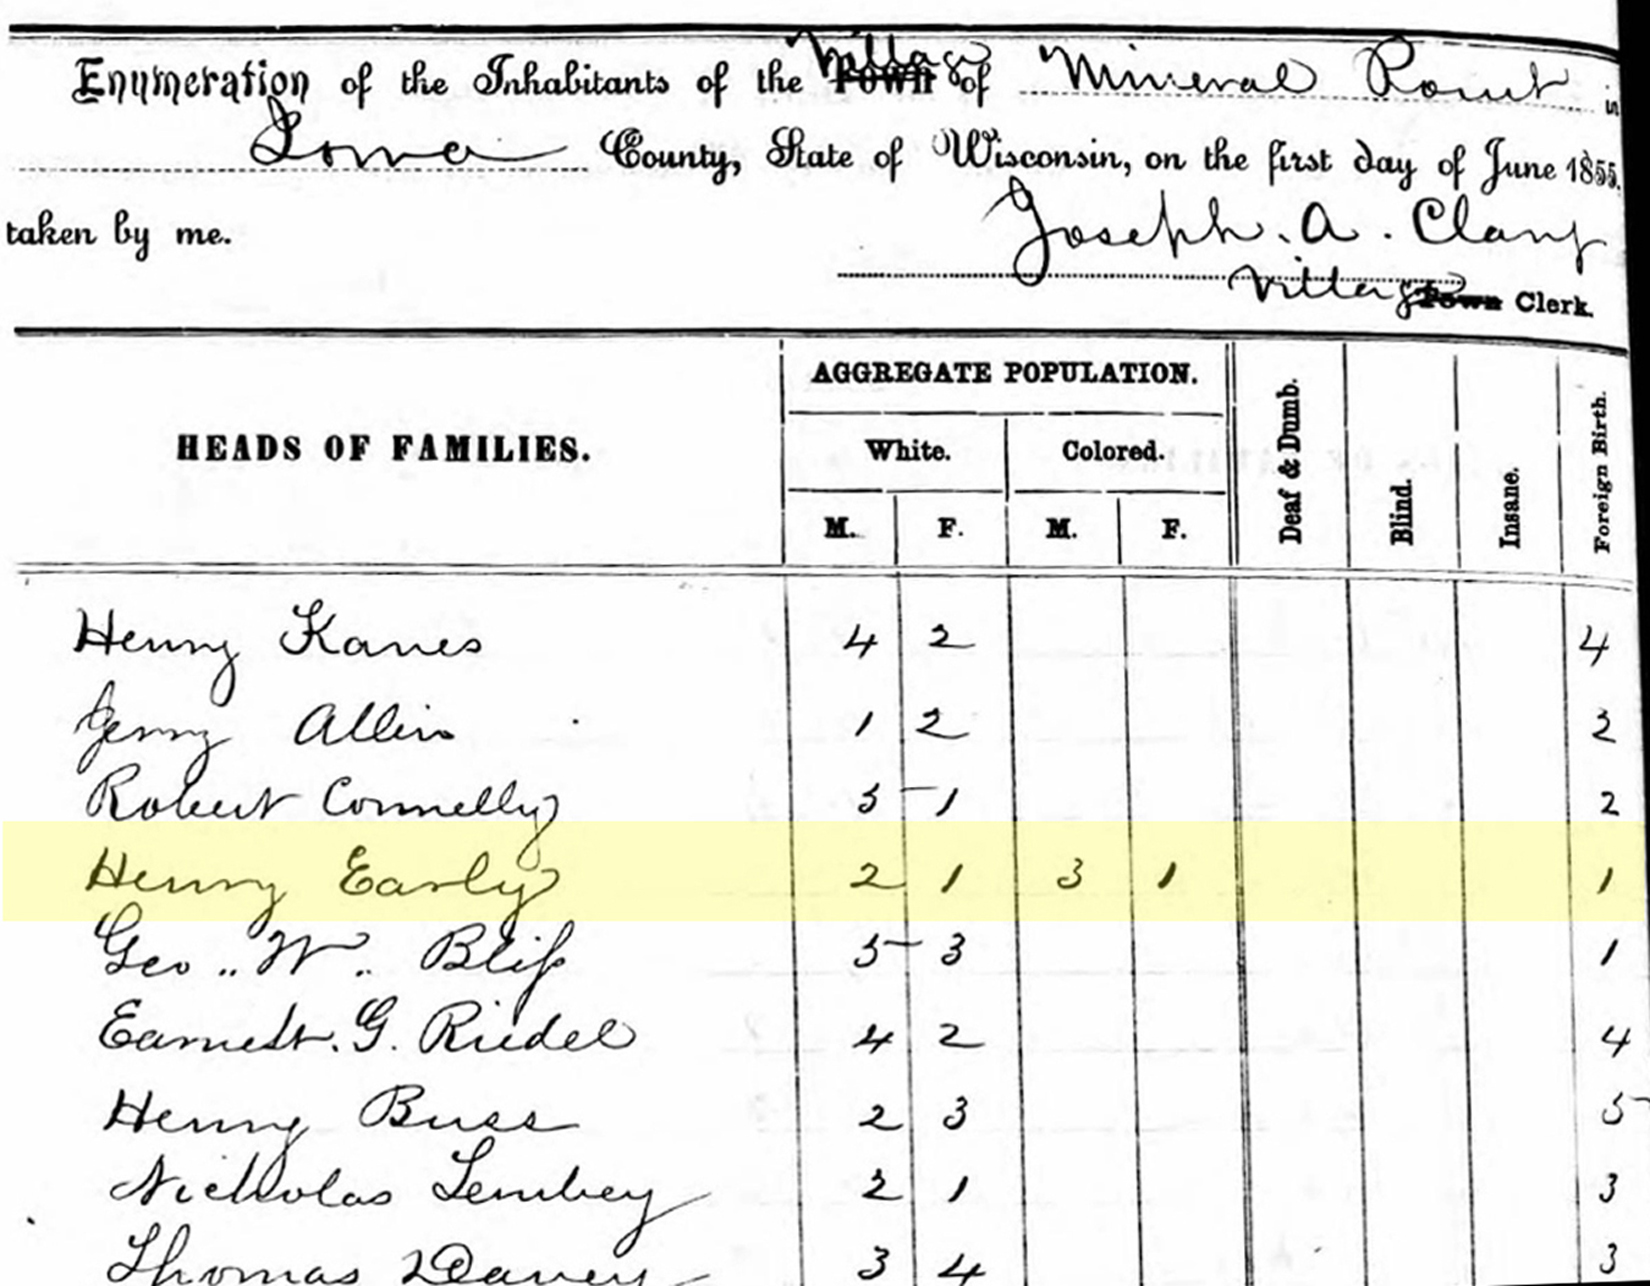 Enumeration of the Inhabitants of the Village Town of Mineral Point in
Iowa County, State of Wisconsin, on the first day of June 1855,
taken by me. Joseph. A. Clary
Village Town Clerk.
HEADS OF FAMILIES. AGGREGATE POPULATION. Deaf & Dumb. Blind. Insane. Foreign Birth.
White. Colored.
M. F. M. F.
Henry Kanes 4 2 4
Jerry Allin 1 2 2
Robert Connelly 5 1 2
Henry Early 2 1 3 1 1
Geo.. W.. Bliss 5 3 1
Earnest. G. Riedel 4 2 4
Henry Buss 2 3 5
Nicholas Lembey 2 1 3
Thomas Davey 3 4 3